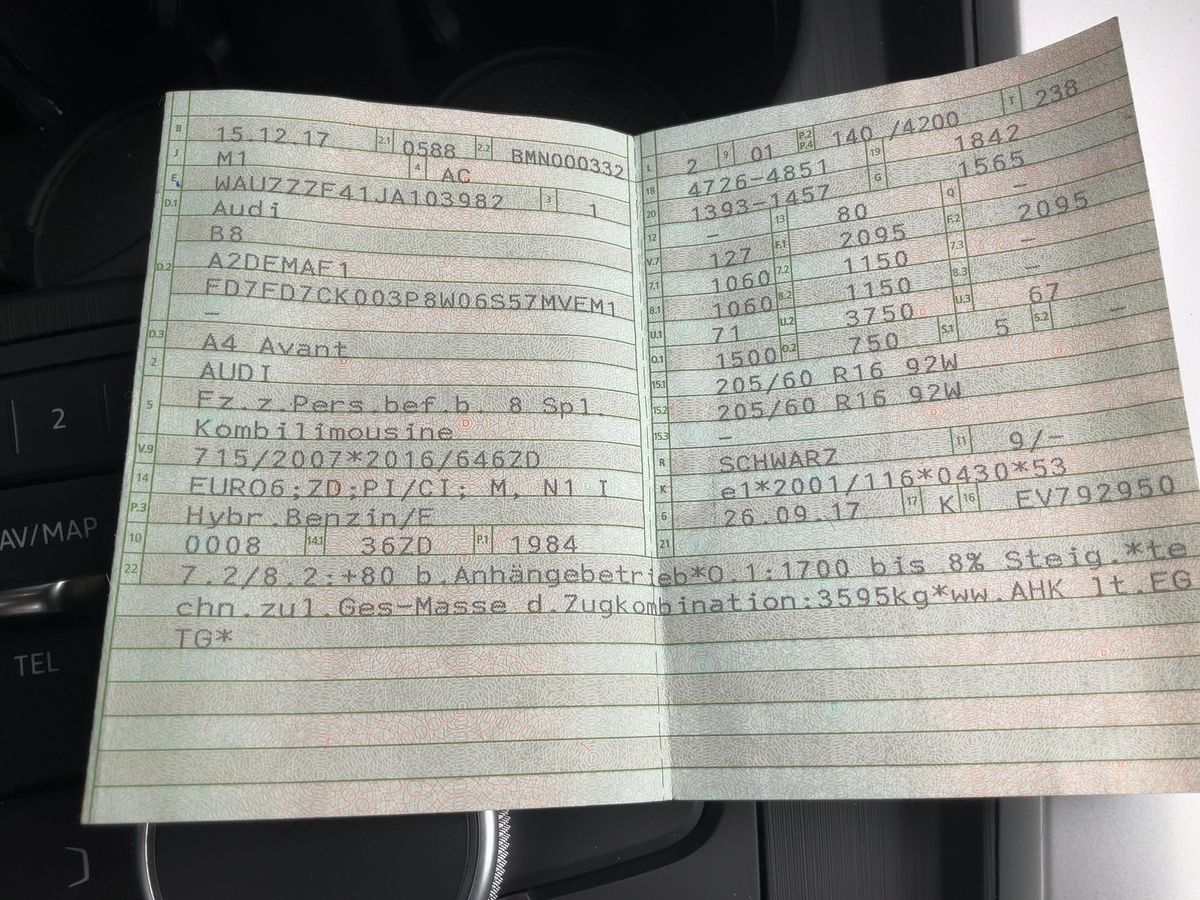 B 15.12.17 2.1 0588 2.2 BMN000332
J M1 4 AC
E WAUZZZF41JA103982 3 1
D.1 Audi
B8
D.2 A2DEMAF1
FD7FD7CK003P8W06S57MVEM1
–
D.3 A4 Avant
2 AUDI
5 Fz.z.Pers.bef.b. 8 Spl.
Kombilimousine
V.9 715/2007*2016/646ZD
14 EURO6;ZD;PI/CI; M, N1 I
P.3 Hybr.Benzin/E
10 0008 14.1 36ZD P.1 1984
L 2 9 01 P.2 P.4 140 /4200 T 238
18 4726-4851 19 1842
20 1393-1457 G 1565
12 – 13 80 Q –
V.7 127 F.1 2095 F.2 2095
7.1 1060 7.2 1150 7.3 –
8.1 1060 8.2 1150 8.3 –
U.1 71 U.2 3750 U.3 67
O.1 1500 O.2 750 S.1 5 S.2 –
15.1 205/60 R16 92W
15.2 205/60 R16 92W
15.3 –
R SCHWARZ 11 9/–
K e1*2001/116*0430*53
6 26.09.17 17 K 16 EV792950
21
22 7.2/8.2:+80 b.Anhängebetrieb*O.1:1700 bis 8% Steig.*te
chn.zul.Ges-Masse d.Zugkombination:3595kg*ww.AHK lt.EG
TG*
2
AV/MAP
TEL